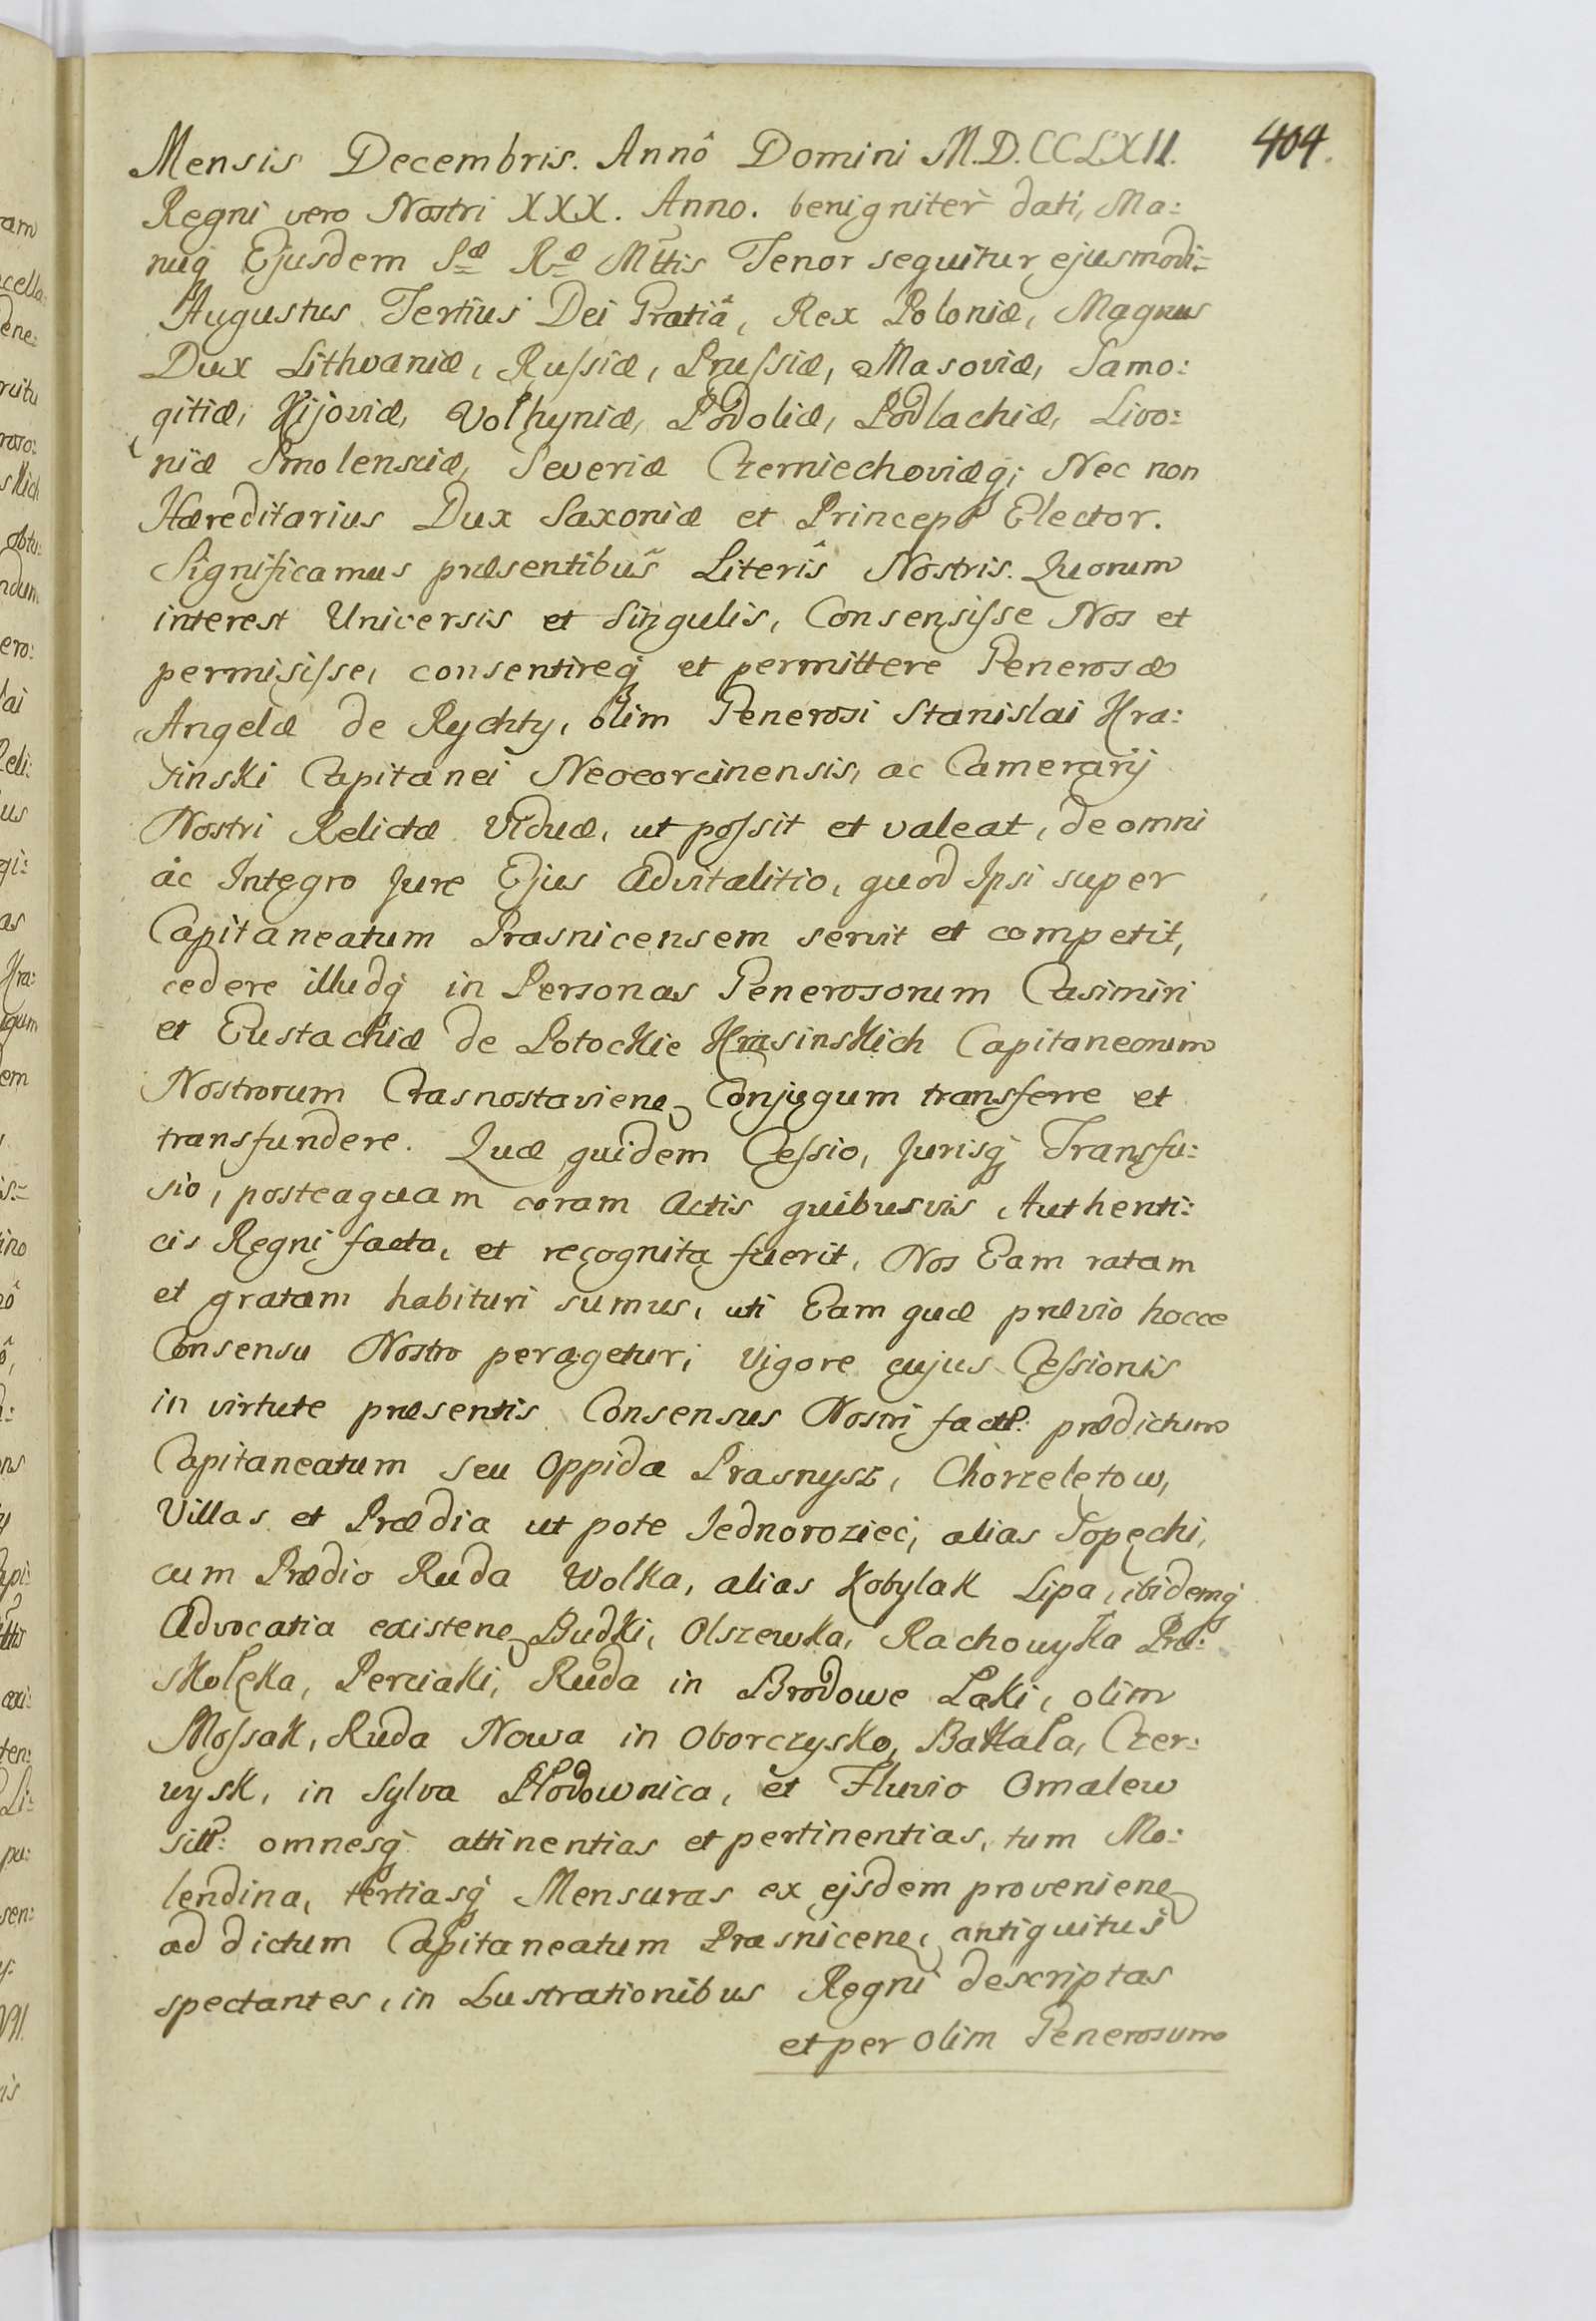 404.
Mensis Decembris. Annô Domini M.D.CCLXII.
Regni vero Nostri XXX. Anno. benigniter dati, Ma:
nuq Ejusdem Sæ Ræ Mttis Tenor sequitur ejusmodi=
Augustus Tertius Dei Gratiâ, Rex Poloniæ, Magnus
Dux Lithvaniæ, Russiæ, Prussiæ, Masoviæ, Samo:
gitiæ, Kijoviæ, Volhyniæ, Podoliæ, Podlachiæ, Livo:
niæ Smolensciæ, Severiæ Czerniechoviæq; Nec non
Hæreditarius Dux Saxoniæ et Princeps Elector.
Significamus præsentibus Literis Nostris. Quorum
interest Universis et Singulis, Consensisse Nos et
permisisse, consentireq et permittere Generosæ
Angelæ de Rychty, olim Generosi Stanislai Kra:
sinski Capitanei Neocorcinensis, ac Camerarij
Nostri Relictæ Viduæ, ut possit et valeat, de omni
ac Integro Jure Ejus Advitalitio, quod Ipsi super
Capitaneatum Prasnicensem servit et competit,
cedere illudq in Personas Generosorum Casimiri
et Eustachiæ de Potockie Krasinskich Capitaneorum
Nostrorum Crasnostaviens Conjugum transferre et
transfundere. Quæ quidem Cessio, Jurisq Transfu:
sio, posteaquam coram Actis quibusvis Authenti:
cis Regni facta, et recognita fuerit, Nos Eam ratam
et gratam habituri sumus, uti Eam quæ prævio hocce
Consensu Nostro perageturi Vigore cujus Cessionis
in virtute præsentis Consensus Nostri factæ: prædictum
Capitaneatum seu Oppida Prasnysz, Chorzeletow,
Villas et Prædia ut pote Jednoroziec, alias Sopęchi,
cum Prædio Ruda Wolka, alias Kobylak Lipa, ibidemq
Advocatia existens Budki, Olszewka, Rachouyka Pru:
skolęka, Perciaki, Ruda in Brodowe Łąki, olim
Mossak, Ruda Nowa in Oborczysko, Bakała, Czer:
uysk, in Sylva Płodownica, et Fluvio Omalew
sitt: omnesq attinentias et pertinentias, tum Mo:
lendina, tertiasq Mensuras ex ejsdem proveniens
ad dictum Capitaneatum Prasnicens, antiquitus
spectantes, in Lustrationibus Regni descriptas
et per olim Generosum